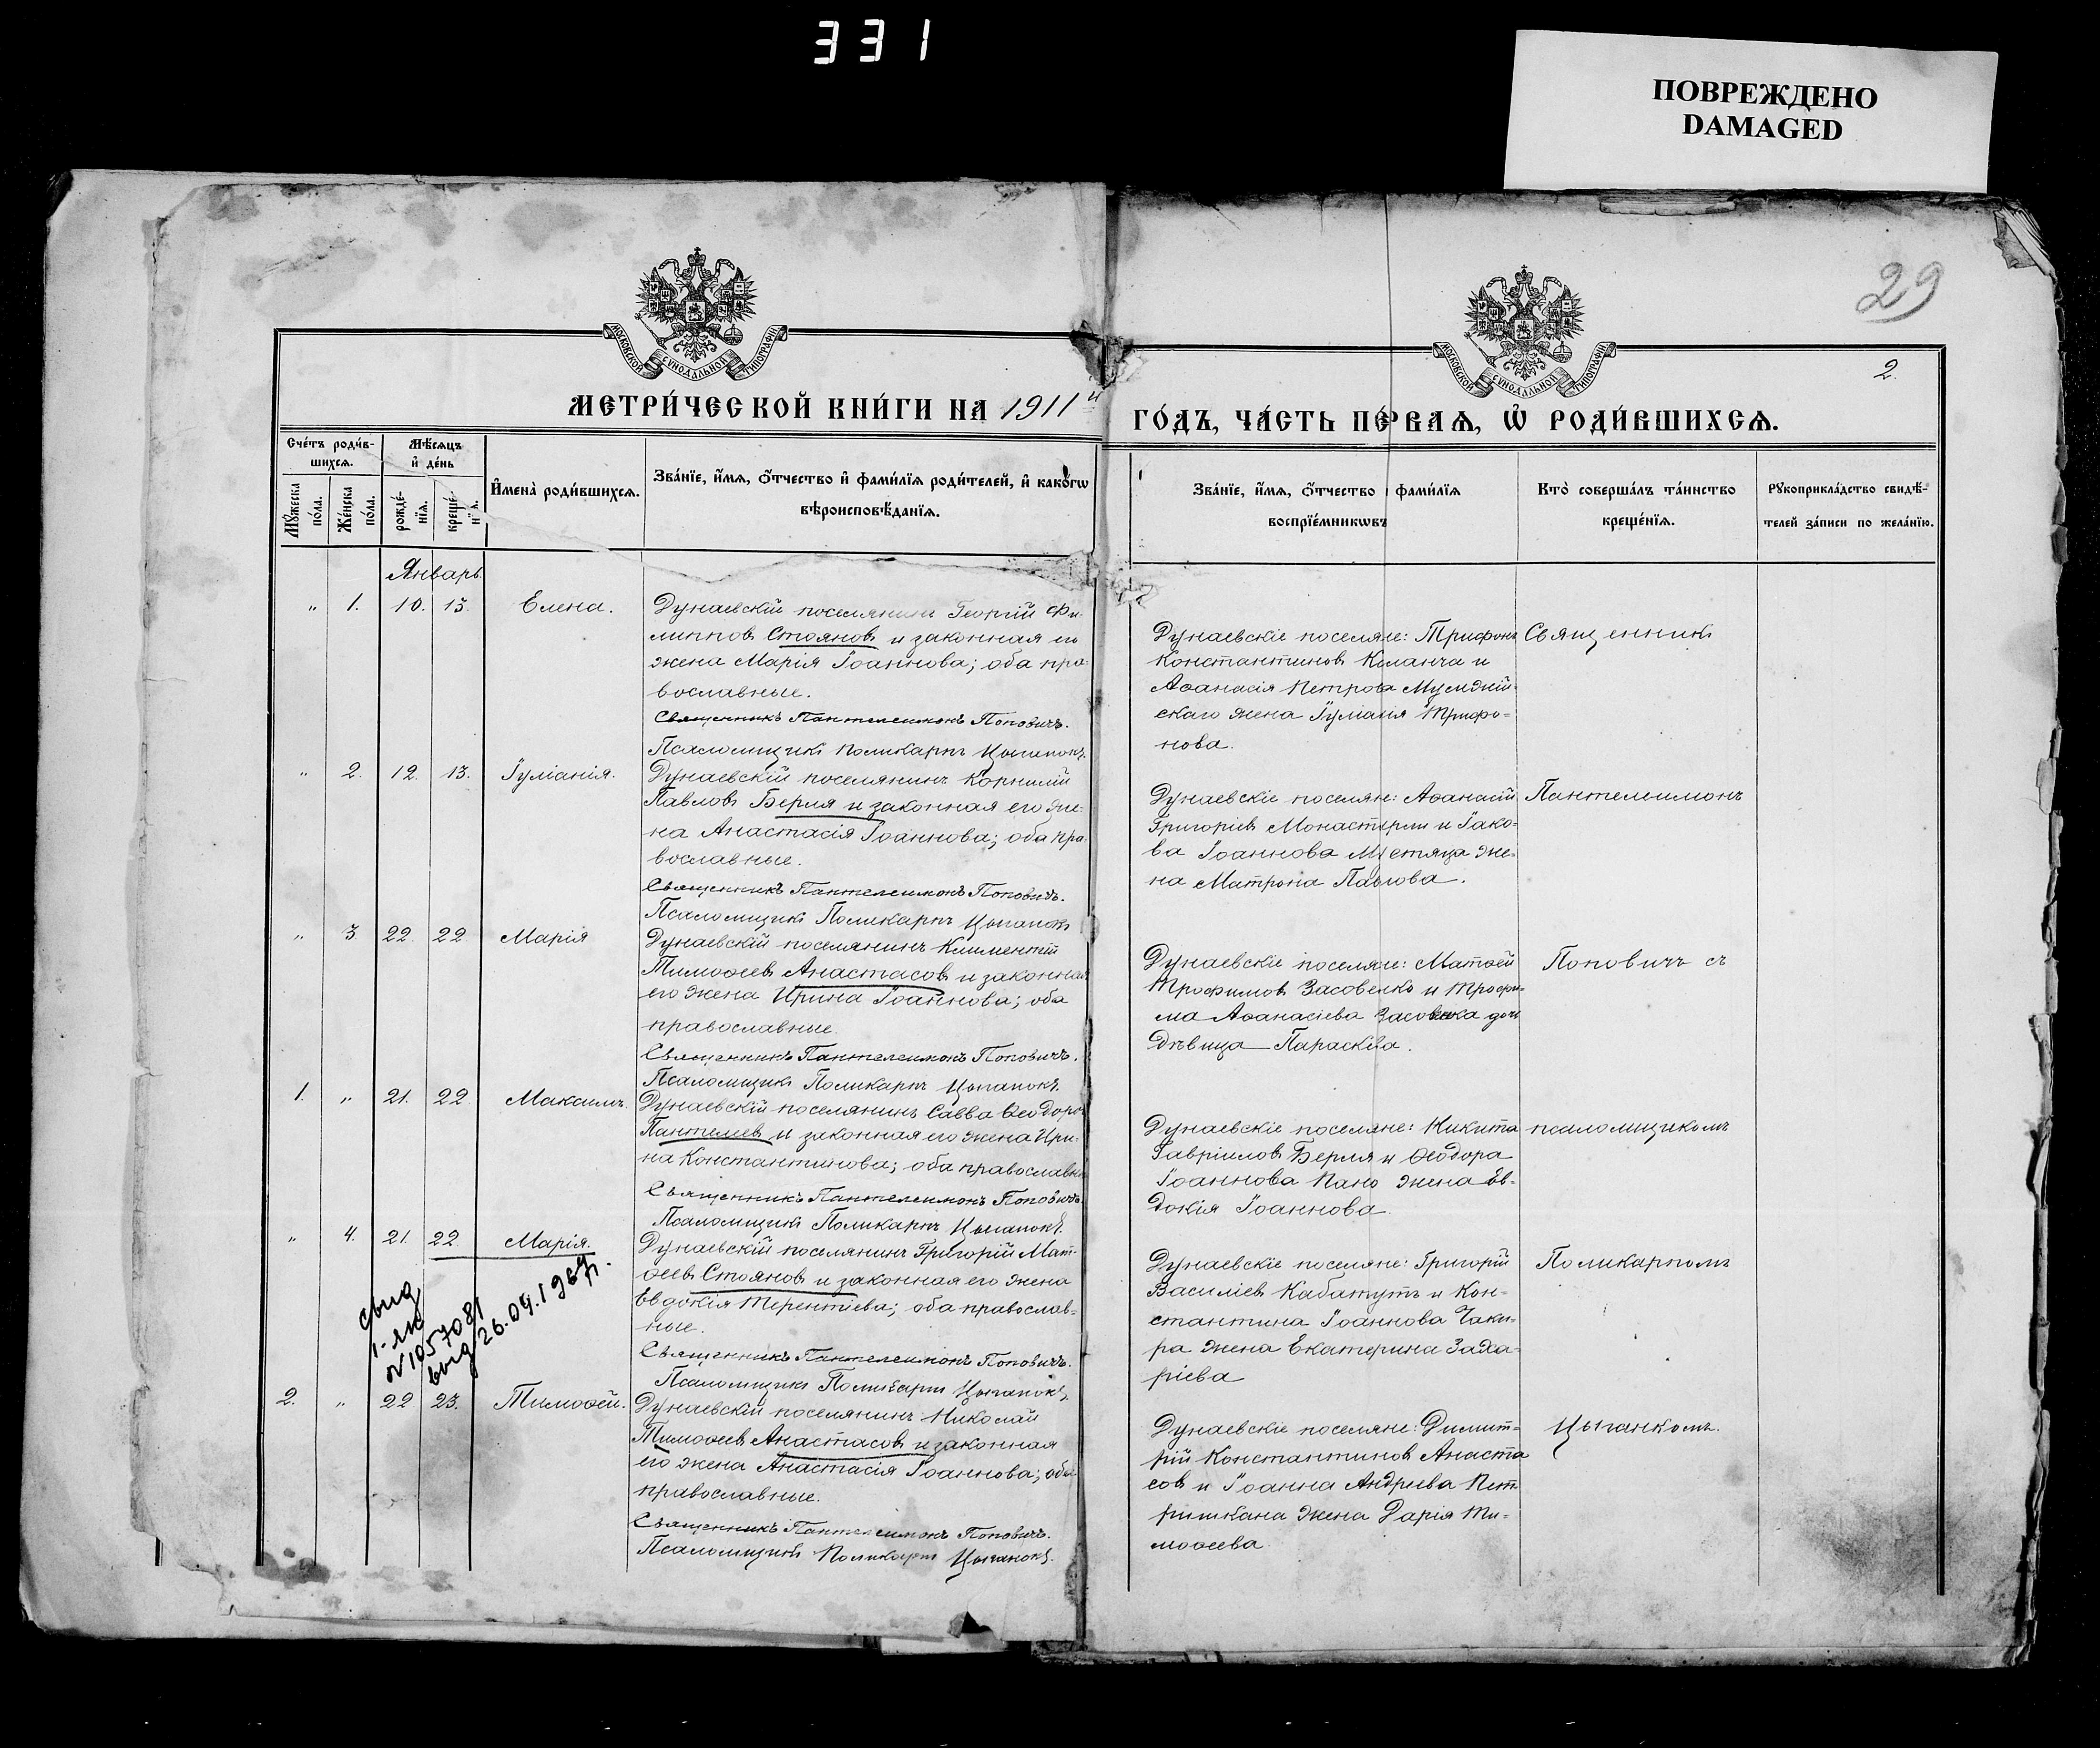 331
ПОВРЕЖДЕНО
DAMAGED
29
2.
МОСКОВСКОЙ СѴНОДАЛЬНОЙ ТИПОГРАФІИ
МОСКОВСКОЙ СѴНОДАЛЬНОЙ ТИПОГРАФІИ
МЕТРИ́ЧЕСКОЙ КНИ́ГИ НА 1911й
ГО́ДЪ, ЧА́СТЬ ПЕ́РВАѦ, Ѽ РОДИ́ВШИХСѦ.
Сче́тъ роди́в-
шихсѧ.
Мꙋ́жеска по́ла.
Же́нска по́ла.
Мѣ́сѧцъ
и҆ де́нь
рожде́-
нїѧ.
креще́-
нїѧ.
И҆мена̀ роди́вшихсѧ.
Зва́нїе, и҆́мѧ, ѻ҆́тчество и҆ фами́лїѧ роди́телей, и҆ како́гѡ
вѣ́роисповѣ́данїѧ.
Зва́нїе, и҆́мѧ, ѻ҆́тчество фами́лїѧ
воспрїе́мникѡвъ
Кто̀ соверша́лъ та́инство
креще́нїѧ.
Рꙋкоприкла́дство свидѣ́-
телей за́писи по жела́нїю.
Январь
„ 1. 10. 13. Елена.
Дунаевскій поселянинъ Георгій Фи-
липповъ Стояновъ и законная его
жена Марія Іоаннова; оба пра-
вославные.
Священникъ Пантелеимонъ Поповичъ.
Псаломщикъ Поликарпъ Цыганокъ.
Дунаевскіе поселяне: Трифонъ
Константиновъ Каланча и
Аѳанасія Петрова
скаго жена Іуліанія Трифо-
нова.
Священникъ
„ 2. 12. 13. Іуліанія.
Дунаевскій поселянинъ Корнилій
Павловъ Берля и законная его же-
на Анастасія Іоаннова; оба пра-
вославные.
Священникъ Пантелеимонъ Поповичъ.
Псаломщикъ Поликарпъ Цыганокъ
Дунаевскіе поселяне: Аѳанасій
Григоріевъ Монастырли и Іако-
ва Іоаннова же-
на Матрона Павлова.
Пантелеимонъ
„ 3. 22. 22. Марія
Дунаевскій поселянинъ Климентій
Тимоѳеевъ Анастасовъ и законная
его жена Ирина Іоаннова; оба
православные.
Священникъ Пантелеимонъ Поповичъ.
Псаломщикъ Поликарпъ Цыганокъ.
Дунаевскіе поселяне: Матѳей
Трофимовъ Засовелко и Трофи-
ма Аѳанасіева дочь
дѣвица Параскева.
Поповичъ съ
1. „ 21. 22. Максимъ.
Дунаевскій поселянинъ Савва Ѳеодоровъ
Пантелеевъ и законная его жена Ири-
на Константинова; оба православные
Священникъ Пантелеимонъ Поповичъ.
Псаломщикъ Поликарпъ Цыганокъ.
Дунаевскіе поселяне: Никита
Гавріиловъ Берля и Ѳеодора
Іоаннова Пано жена Ев-
докія Іоаннова.
псаломщикомъ
„ 4. 21. 22. Марія.
Дунаевскій поселянинъ Григорій Мат-
ѳеевъ Стояновъ и законная его жена
Евдокія Терентіева; оба православ-
ные.
Священникъ Пантелеимонъ Поповичъ.
Псаломщикъ Поликарпъ Цыганокъ.
Дунаевскіе поселяне: Григорій
Василіевъ Кабатутъ и Кон-
стантина Іоаннова Чаки-
ра жена Екатерина Заха-
ріева
Поликарпомъ
свид
N 1057081
выд 26.09.1969г.
2. „ 22 23. Тимоѳей.
Дунаевскій поселянинъ Николай
Тимоѳеевъ Анастасовъ и законная
его жена Анастасія Іоаннова; оба
православные.
Священникъ Пантелеимонъ Поповичъ.
Псаломщикъ Поликарпъ Цыганокъ.
Дунаевскіе поселяне: Димит-
рій Константиновъ Анаста
совъ и Іоанна Андреева Пет-
ришкана жена Дарія Ти-
моѳеева
Цыганкомъ.